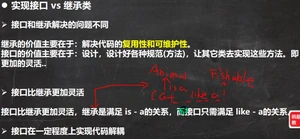 实现接口 vs 继承类
接口和继承解决的问题不同
继承的价值主要在于：解决代码的复用性和可维护性。
接口的价值主要在于：设计，设计好各种规范(方法)，让其它类去实现这些方法。即更加的灵活..
Animal Fishable
接口比继承更加灵活
is a
Cat like a
接口比继承更加灵活，继承是满足 is - a的关系，而接口只需满足 like - a的关系
接口在一定程度上实现代码解耦